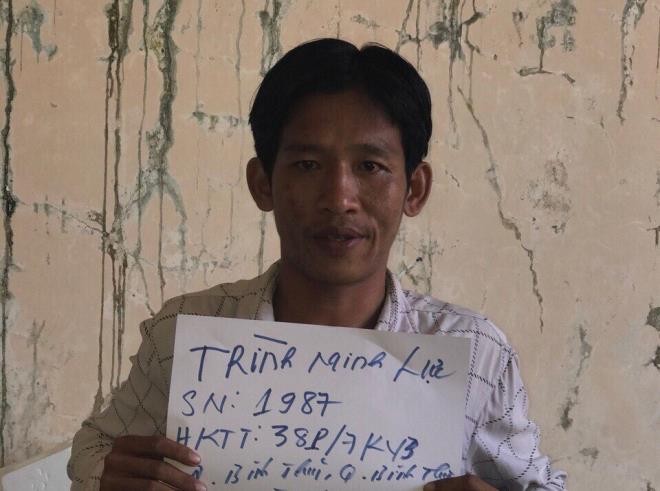 TRÌNH MINH LỰC
SN: 1987
HKTT: 38P/7KV3
P. BÌNH THUỶ, Q. BÌNH THUỶ